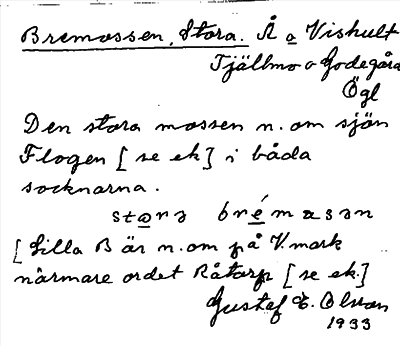 Bremossen, Stora. Å a Vishult
Tjällmo o Godegård
Ögl
Den stora mossen n. om sjön
Flogen [se ek] i båda
socknarna.
stora brémasan
[Lilla B är n. om på V. mark
närmare ordet Råtorp [se ek.]
Gustaf E. Olsson
1933